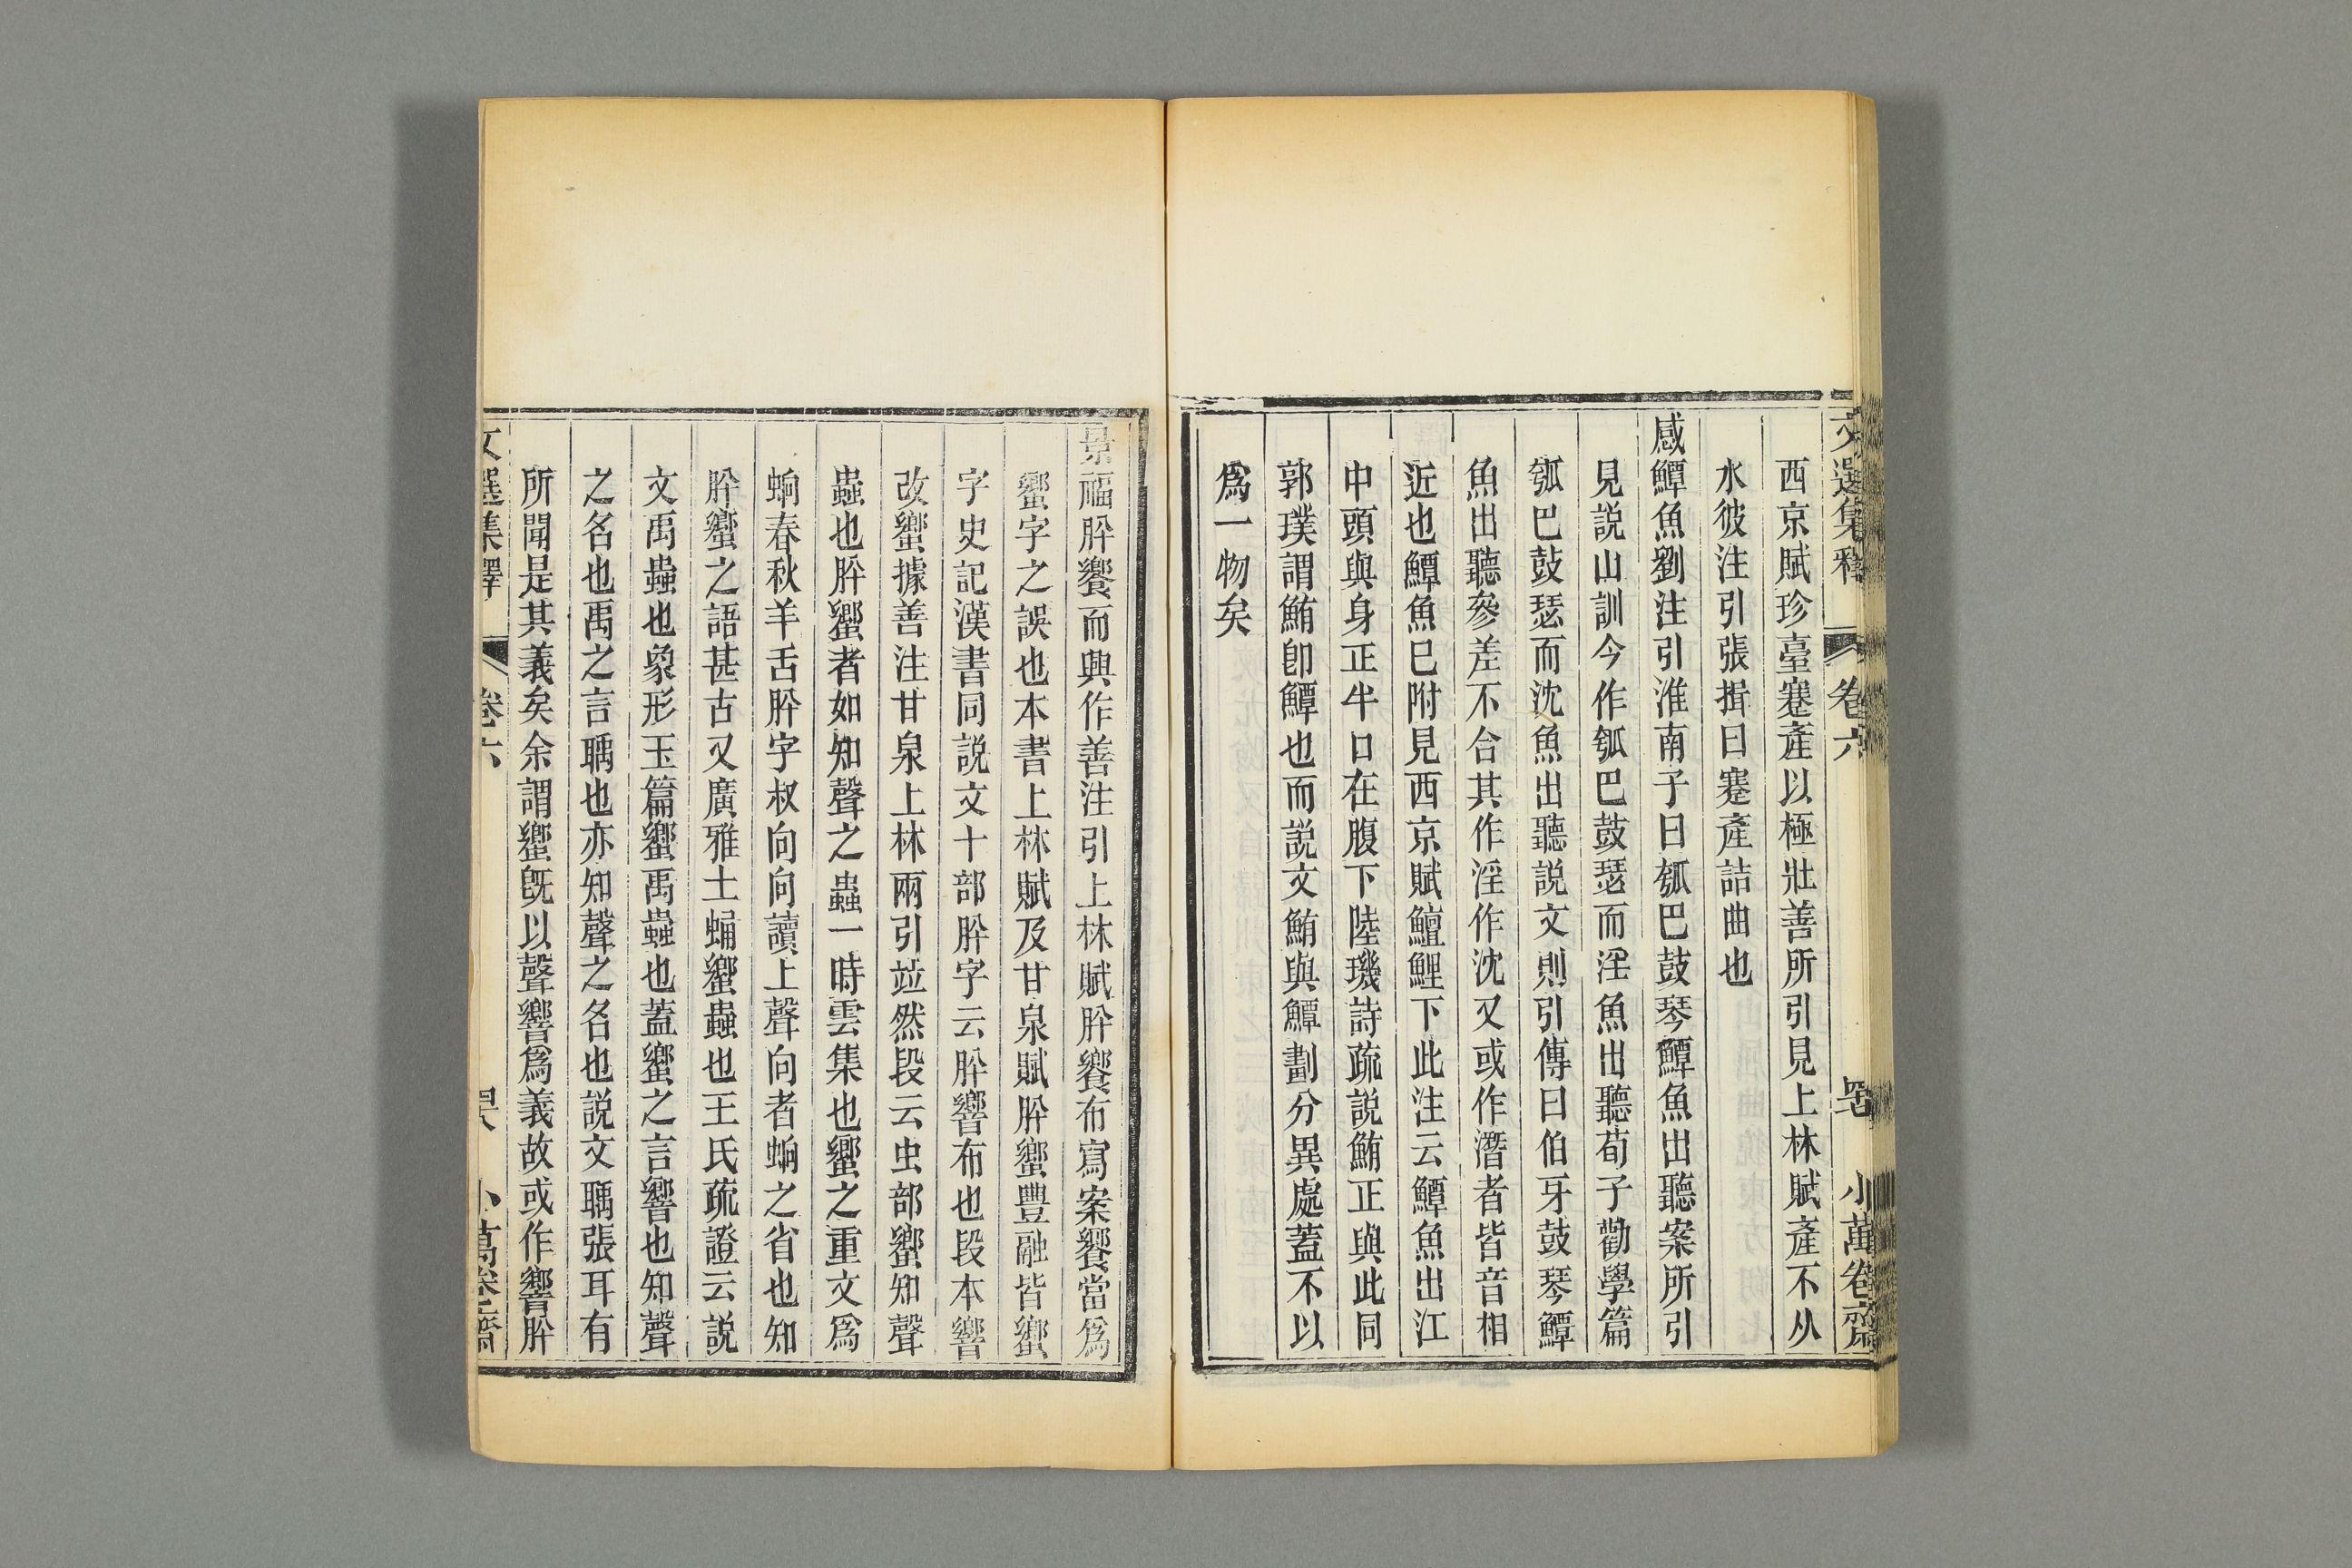 文選集釋 卷六 小萬卷齋
西京賦珍臺蹇產以極壯善所引見上林賦產不从
水彼注引張揖曰蹇產詰曲也
感鱏魚劉注引淮南子曰瓠巴鼓琴鱏魚出聽案所引
見說山訓今作瓠巴鼓瑟而淫魚出聽荀子勸學篇
瓠巴鼓瑟而沈魚出聽說文則引傳曰伯牙鼓琴鱏
魚出聽參差不合其作淫作沈又或作潛者皆音相
近也鱏魚已附見西京賦鱣鯉下此注云鱏魚出江
中頭與身正半口在腹下陸璣詩疏說鮪正與此同
郭璞謂鮪卽鱏也而說文鮪與鱏劃分異處蓋不以
爲一物矣
景福肸饗而興作善注引上林賦肸饗布寫案饗當爲
蠁字之誤也本書上林賦及甘泉賦肸蠁豐融皆蠁
字史記漢書同說文十部肸字云肸響布也段本響
改蠁據善注甘泉上林兩引竝然段云虫部蠁知聲
蟲也肸蠁者如知聲之蟲一時雲集也蠁之重文爲
蚼春秋羊舌肸字叔向向讀上聲向者蚼之省也知
肸蠁之語甚古又廣雅土蛹蠁蟲也王氏疏證云說
文禹蟲也象形玉篇蠁禹蟲也蓋蠁之言響也知聲
之名也禹之言聥也亦知聲之名也說文聥張耳有
所聞是其義矣余謂蠁旣以聲響爲義故或作響肸
文選集釋 卷六 小萬卷齋